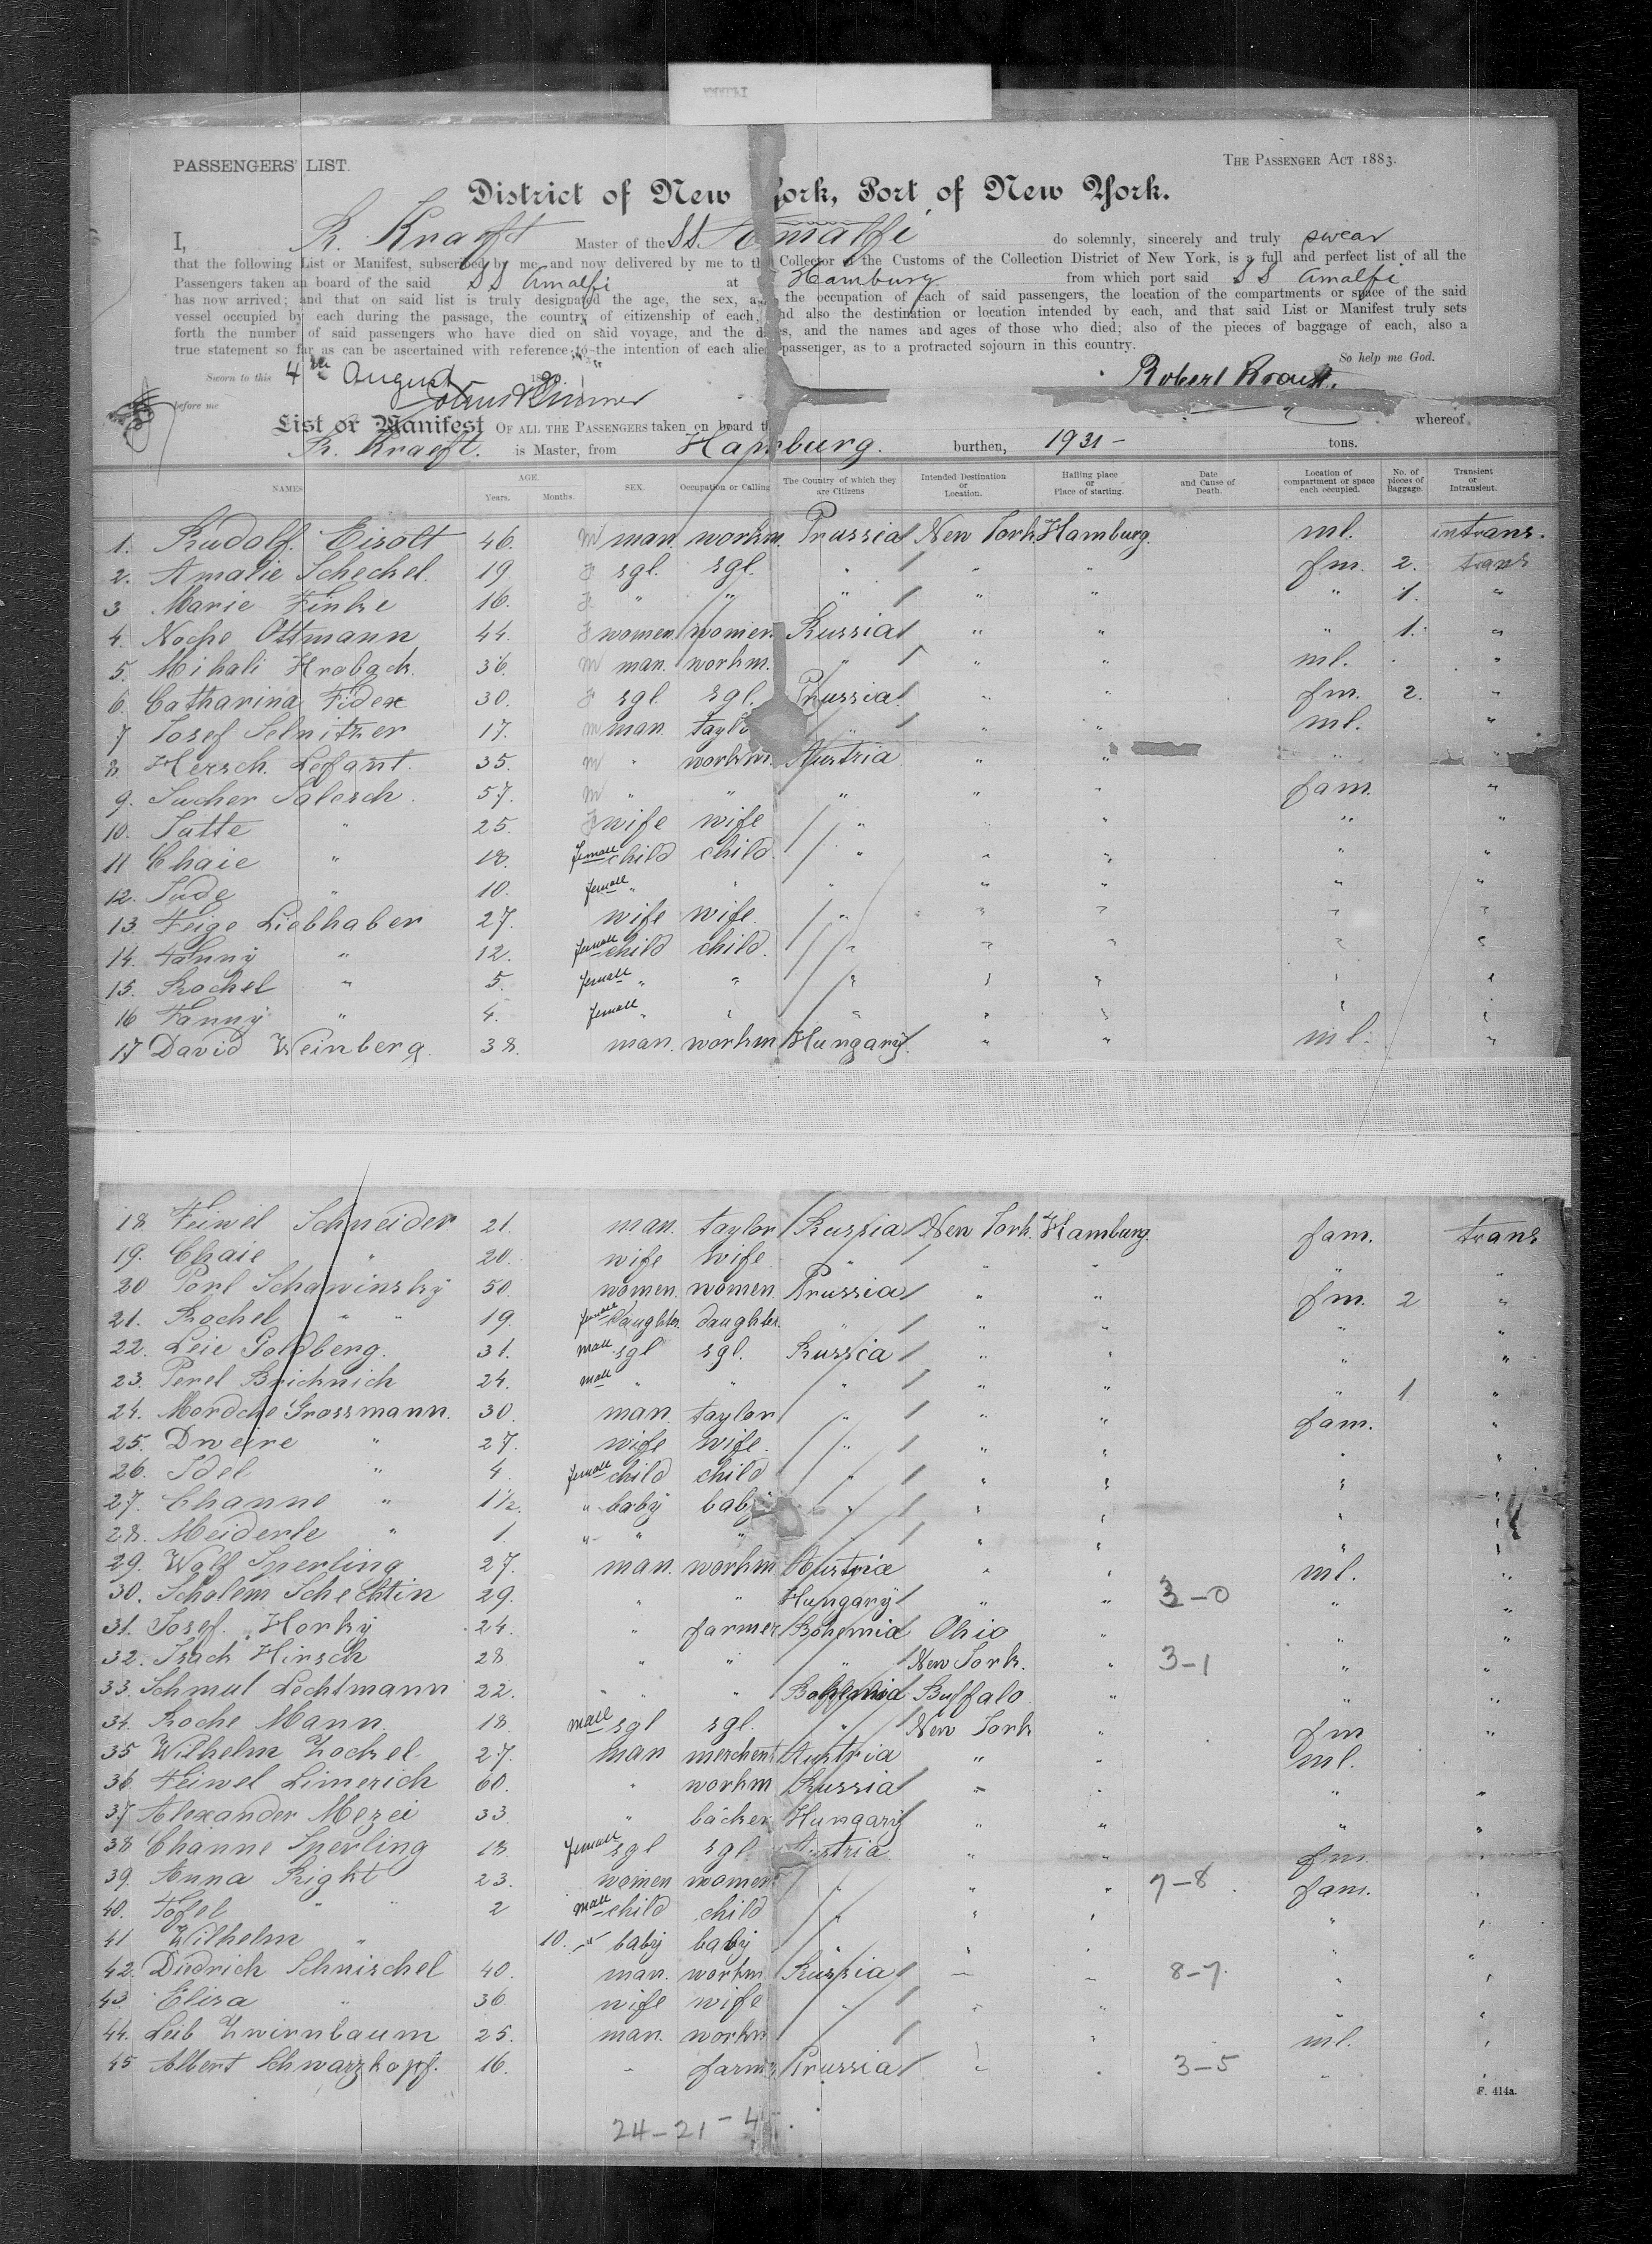 PASSENGERS' LIST.
THE PASSENGER ACT 1883.
District of New York, Port of New York.
I, R. Kraeft Master of the SS. Amalfi do solemnly, sincerely and truly swear
that the following List or Manifest, subscribed by me and now delivered by me to the Collector of the Customs of the Collection District of New York, is a full and perfect list of all the
Passengers taken on board of the said SS Amalfi at Hamburg from which port said SS Amalfi
has now arrived; and that on said list is truly designated the age, the sex, and the occupation of each of said passengers, the location of the compartments or space of the said
vessel occupied by each during the passage, the country of citizenship of each, and also the destination or location intended by each, and that said List or Manifest truly sets
forth the number of said passengers who have died on said voyage, and the dates, and the names and ages of those who died; also of the pieces of baggage of each, also a
true statement so far as can be ascertained with reference to the intention of each alien passenger, as to a protracted sojourn in this country.
So help me God.
Sworn to this 4th August 1890
Robert Kraeft.
before me
List or Manifest OF ALL THE PASSENGERS taken on board the whereof
R. Kraeft. is Master, from Hamburg. burthen, 1931 - tons.
NAMES AGE. Years. Months. SEX. Occupation or Calling The Country of which they are Citizens Intended Destination or Location. Hailing place or Place of starting. Date and Cause of Death. Location of compartment or space each occupied. No. of pieces of Baggage. Transient or Intransient.
1. Rudolf Eisolt 46. m man. workm. Prussia New York. Hamburg. ml. intrans.
2. Amalie Schechel. 19 f sgl. sgl. " " " fm. 2. trans
3 Marie Finke 16. f " " " " " " 1. "
4. Noche Ottmann 44. f women women Russia " " " 1. "
5. Mihali Hraback. 36. m man. workm. " " " ml. "
6. Catharina Fidex 30. f sgl. sgl. Prussia " " fm. 2. "
7 Josef Selnitzer 17. m man. taylor " " " ml. "
8. Hersch. Lefant. 35. m " workm. Austria " " " "
9. Sucher Salesch. 57. m " " " " " fam. "
10. Jatte " 25. f wife wife " " " " "
11 Chaie " 18. female child child. " " " " "
12. Jude " 10. female " " " " " " "
13. Feige Liebhaber 27. wife wife. " " " " "
14. Fanny " 12. female child child. " " " " "
15. Rochel " 5. female " " " " " " "
16 Fanny " 4. female " " " " " " "
17 David Weinberg. 38. man. workm Hungary. " " ml. "
18 Feiwel Schneider 21. man. taylor Russia New York. Hamburg. fam. trans
19. Chaie " 20. wife wife " " " " "
20 Perl Schawinsky 50. women. women. Prussia " " fm. 2 "
21. Rochel " " 19. female daughter. daughter. " " " " "
22. Leie Goldberg. 31. male sgl sgl. Russia " " " "
23. Perel Bricknich 24. male " " " " " " 1 "
24. Mordche Grossmann. 30. man. taylor " " " fam. "
25. Dweire " 27. wife wife. " " " " "
26. Idel " 4. female child child " " " " "
27. Channe " 1½. " baby baby " " " " "
28. Meiderle " 1. " " " " " " " "
29. Wolf Sperling 27. man. workm Austria " " ml. "
30. Scholem Schechtin 29. " " Hungary " " 3-0 " "
31. Josef. Horky 24. " farmer Bohemia Ohio " " "
32. Isack Hirsch 28. " " " New York. " 3-1 " "
33. Schmul Lechtmann 22. " " " Buffalo " " "
34. Roche Mann. 18. male sgl sgl. " New York " fm "
35 Wilhelm Zockel. 27. man merchent Austria " " ml.
36. Feiwel Limerich 60. " workm Russia " " " "
37 Alexander Mezei 33 " bäcker Hungary " " " "
38 Channe Sperling 18. female sgl sgl Austria " " fm. "
39. Anna Right 23. women women " " " 7-8 fam. "
40. Tofel " " 2 male child child " " " " "
41 Wilhelm " 10. " baby baby " " " " "
42. Diedrich Schnischel 40. man. workm Russia " " 8-7. " "
43. Elisa " 36 wife wife " " " " "
44. Leib Zwirnbaum 25. man. workm " " ml. "
45 Albert Schwarzkopf. 16. " farm. Prussia " " 3-5 " "
F. 414a.
24-21-4